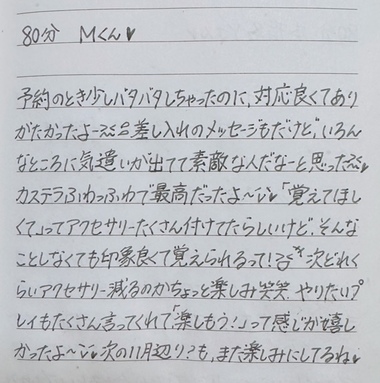 80分 Mくん♥
予約のとき少しバタバタしちゃったのに、対応良くてあり
がたかったよー 差し入れのメッセージもだけど、いろん
なところに気遣いが出てて素敵な人だなーと思った
カステラふわっふわで最高だったよ〜♥「覚えてほし
くて」ってアクセサリーたくさん付けてたらしいけど、そんな
ことしなくても印象良くて覚えられるって! 次どれく
らいアクセサリー減るのかちょっと楽しみ笑笑 やりたいプ
レイもたくさん言ってくれて「楽しもう!」って感じが嬉し
かったよ〜♥次の11月辺り?も、また楽しみにしてるね♥